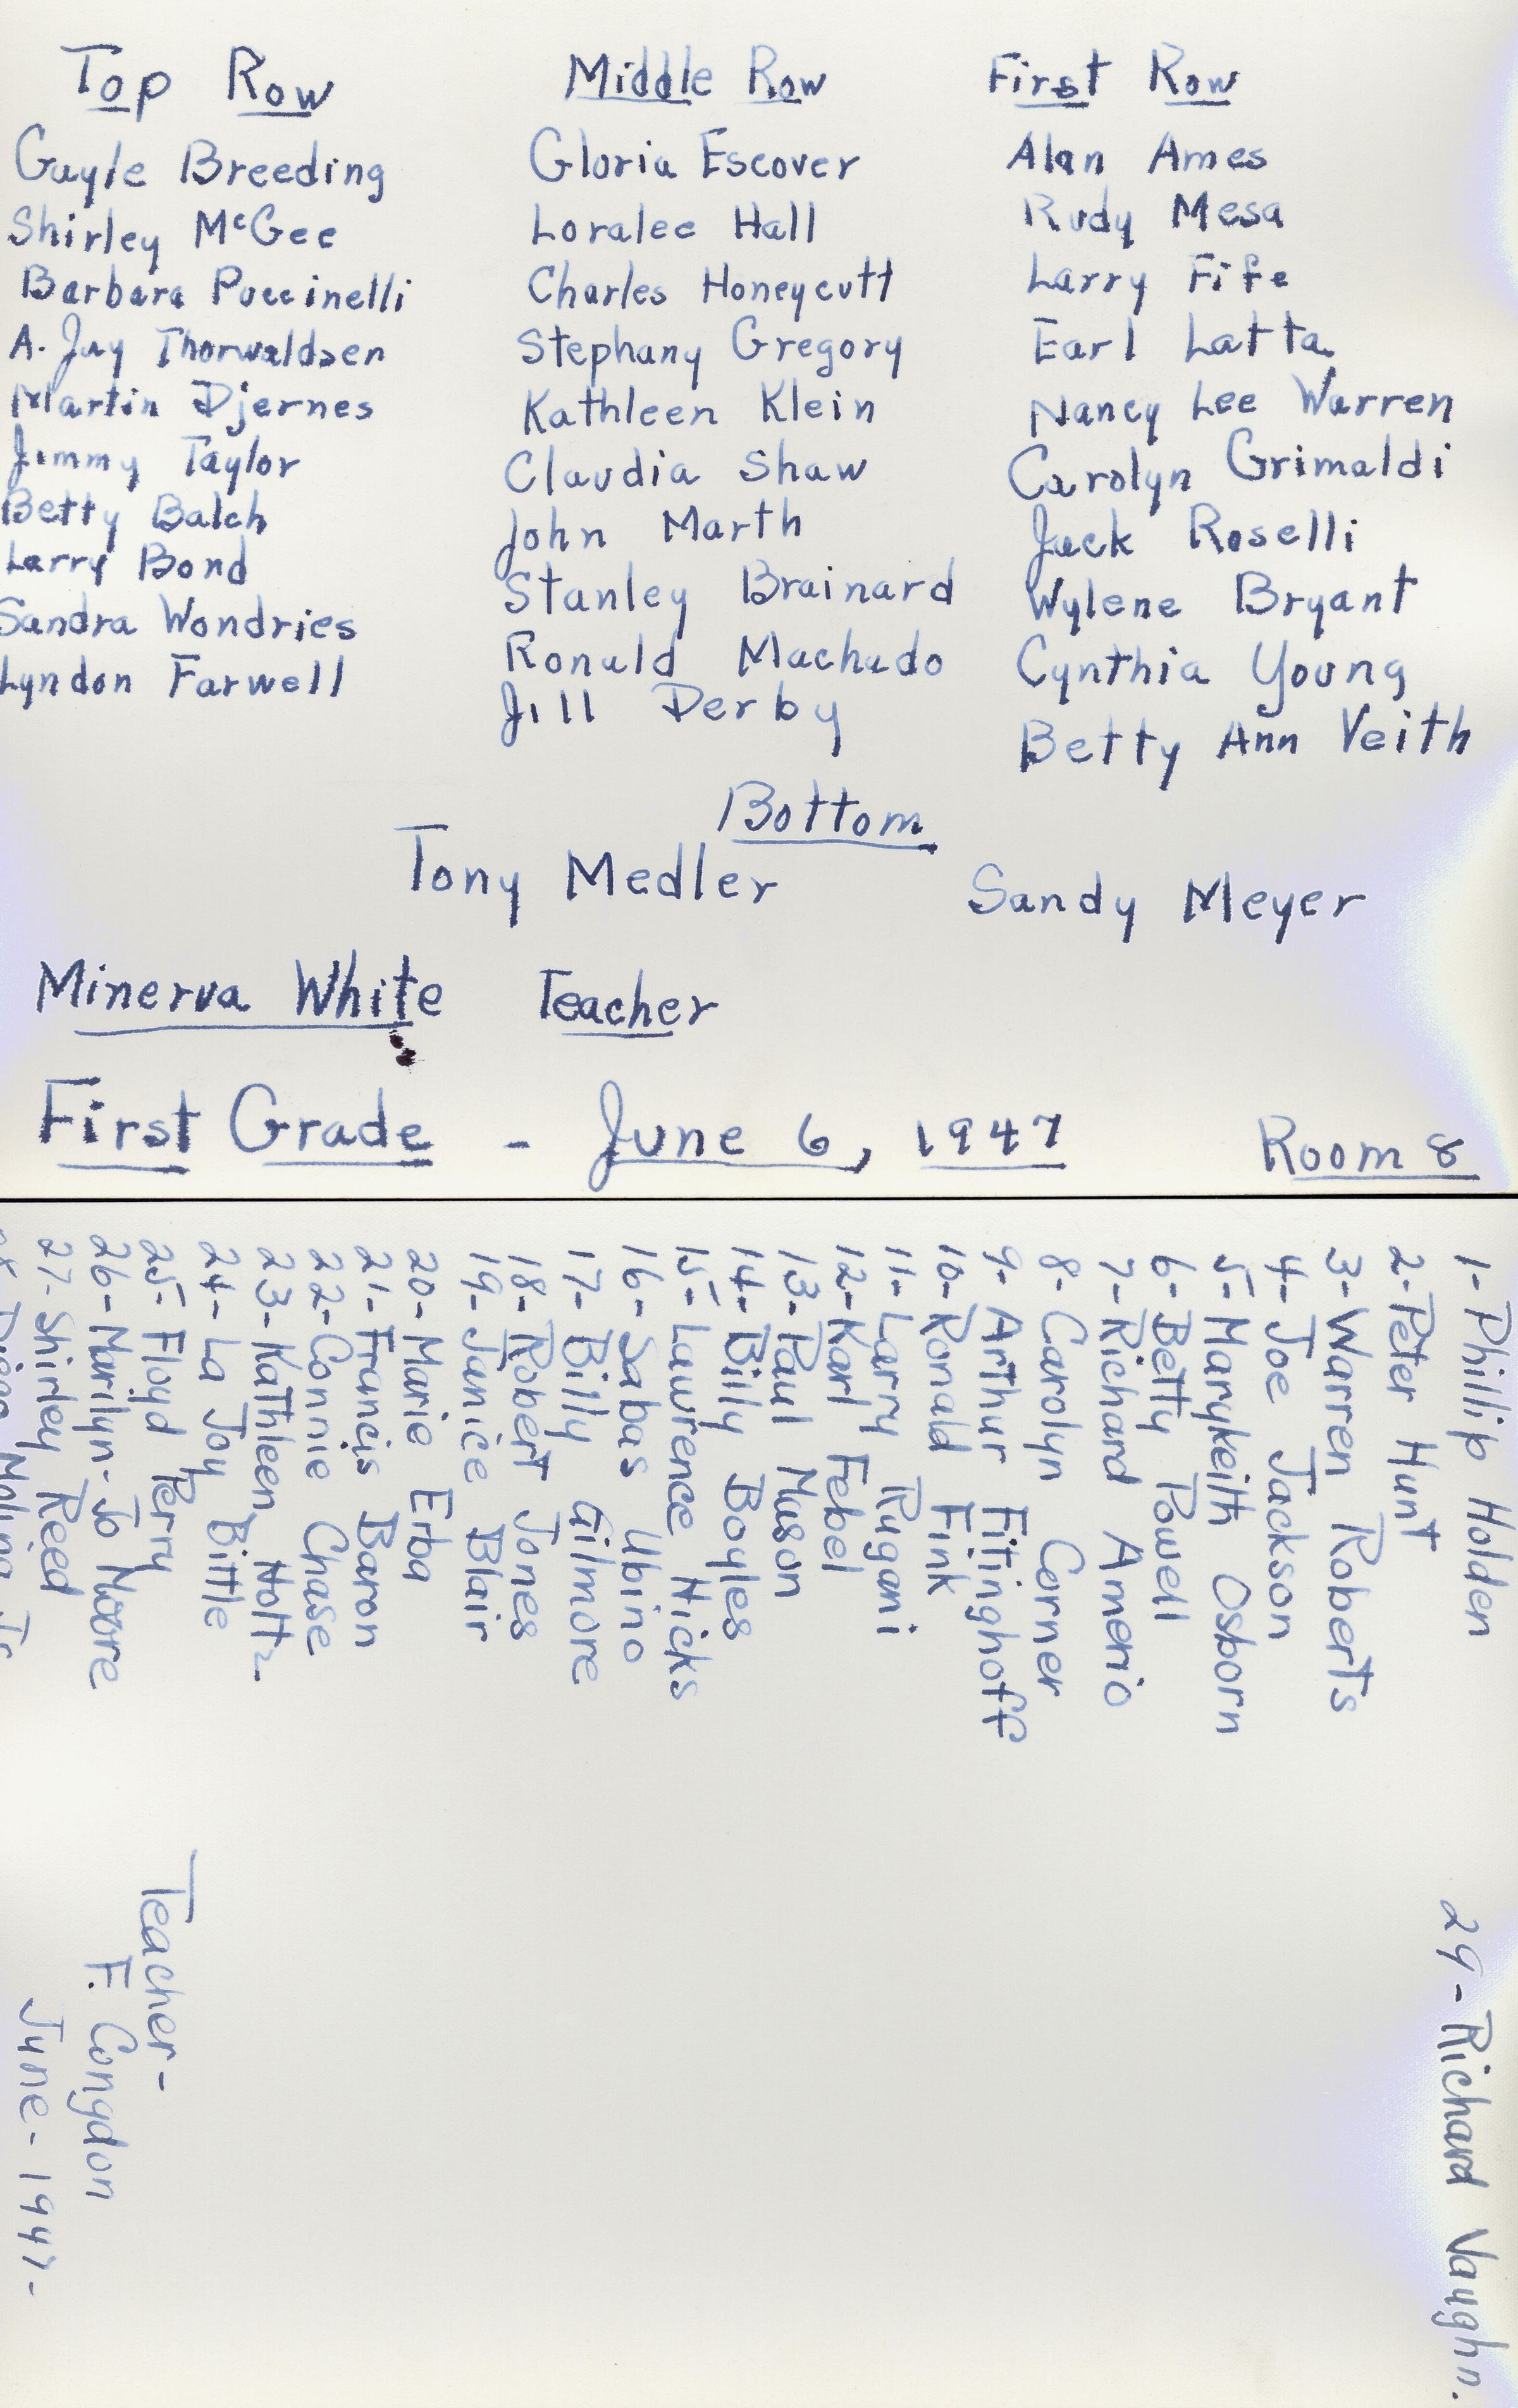 Top Row
Gayle Breeding
Shirley McGee
Barbara Puccinelli
A. Jay Thorwaldsen
Martin Djernes
Jimmy Taylor
Betty Balch
Larry Bond
Sandra Wondries
Lyndon Farwell
Middle Row
Gloria Escover
Loralee Hall
Charles Honeycutt
Stephany Gregory
Kathleen Klein
Claudia Shaw
John Marth
Stanley Brainard
Ronald Machado
Jill Derby
First Row
Alan Ames
Rudy Mesa
Larry Fife
Earl Latta
Nancy Lee Warren
Carolyn Grimaldi
Jack Roselli
Wylene Bryant
Cynthia Young
Betty Ann Veith
Bottom
Tony Medler Sandy Meyer
Minerva White Teacher
First Grade - June 6, 1947 Room 8
1- Phillip Holden
2- Peter Hunt
3- Warren Roberts
4- Joe Jackson
5- Marykeith Osborn
6- Betty Powell
7- Richard Amerio
8- Carolyn Corner
9- Arthur Fitinghoff
10- Ronald Fink
11- Larry Rugani
12- Karl Febel
13- Paul Mason
14- Billy Boyles
15- Lawrence Hicks
16- Sabas Ubino
17- Billy Gilmore
18- Robert Jones
19- Janice Blair
20- Marie Erba
21- Francis Baron
22- Connie Chase
23- Kathleen Holtz
24- La Joy Bittle
25- Floyd Perry
26- Marilyn Jo Moore
27- Shirley Reed
Molina Jr
29- Richard Vaughn.
Teacher-
F. Congdon
June - 1947-